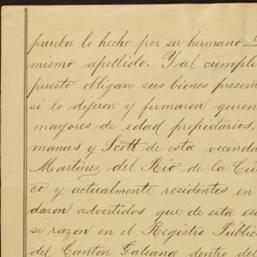 prueba lo hecho por su hermano
mismo apellido. Y al cumpli
puesto obligan sus bienes present
si lo dijeron y firmaron quien
mayores de edad propietarios,
manus y Scott de esta vecinda
Martinez del Rio de la Ciu
co y actualmente residentes en
daron advertidos que de esta es
se razon en el Registro Public
del Canton Galeana dentro del